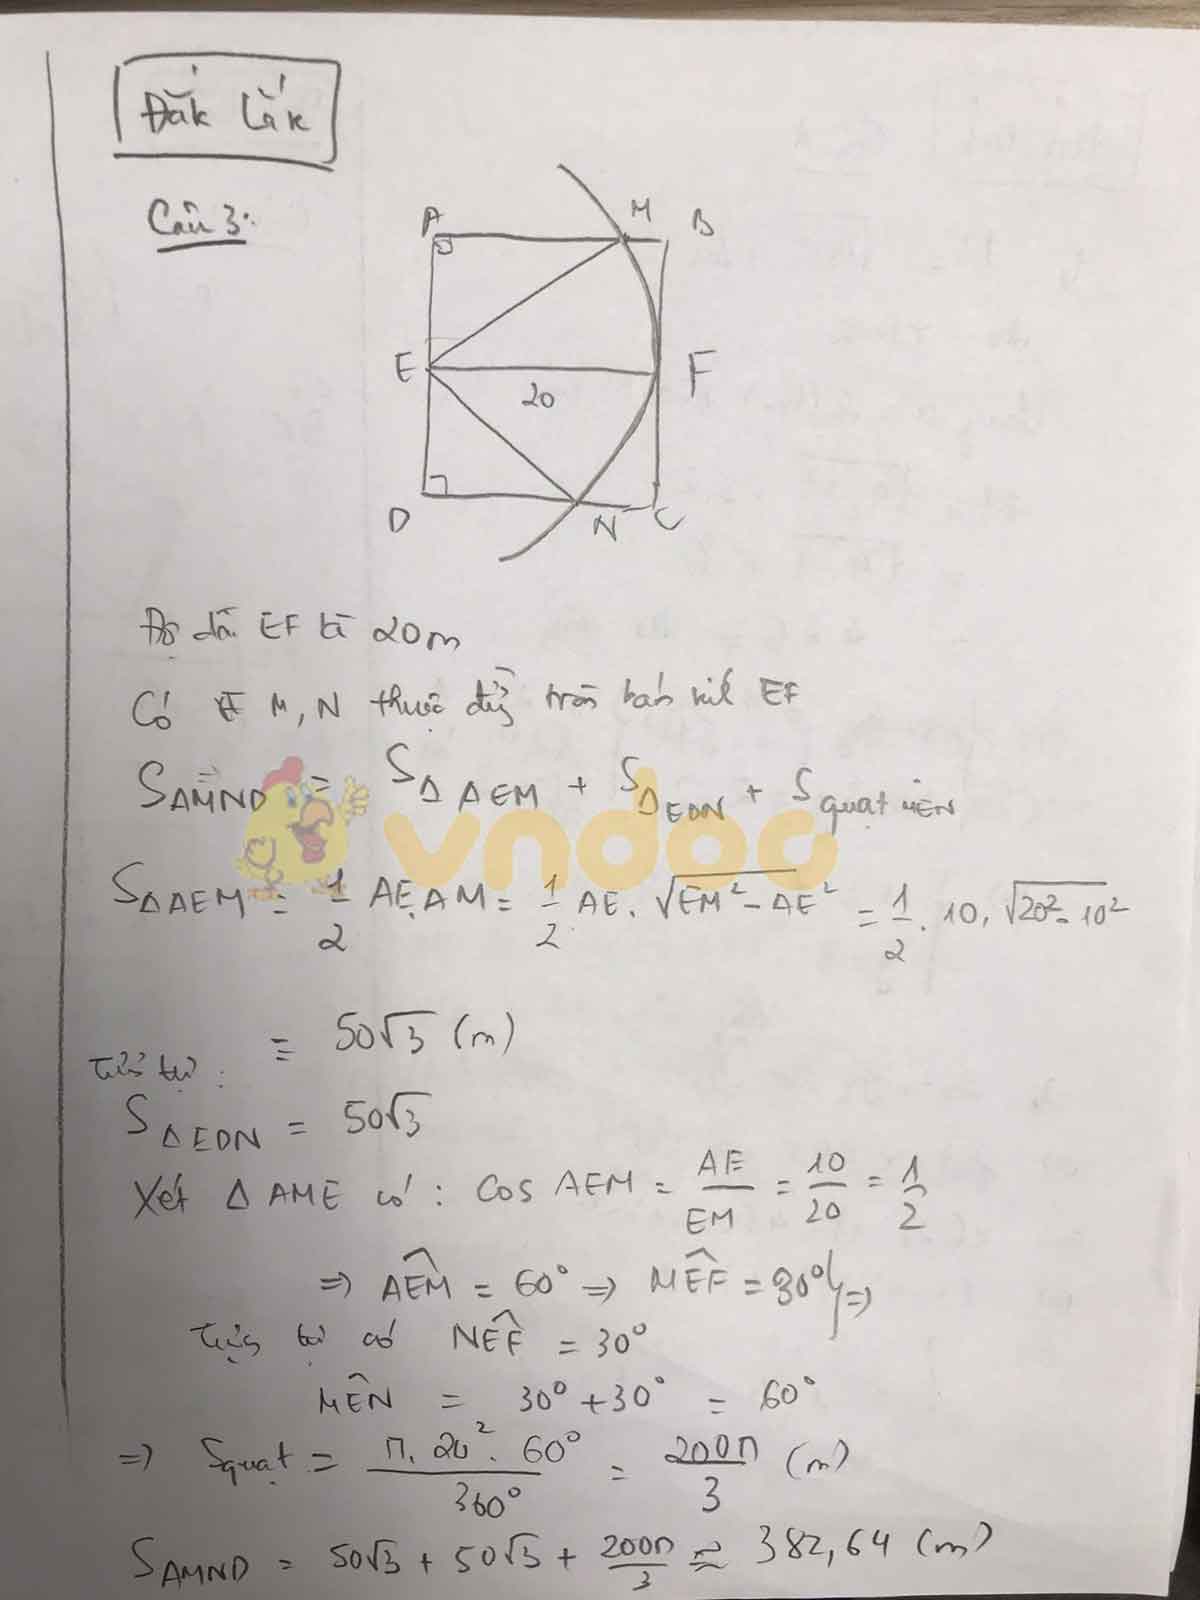 Đắk Lắk
Câu 3:
A M B
E 20 F
D N C
Độ dài EF là 20m
Có M, N thuộc đường tròn bán kính EF
S_AMND = S_ΔAEM + S_ΔEDN + S quạt MEN
vndoc
S_ΔAEM = 1/2 AE.AM = 1/2 AE.√(EM² - AE²) = 1/2 . 10 . √(20² - 10²)
= 50√3 (m)
Tương tự:
S_ΔEDN = 50√3
Xét Δ AME có: COS AEM = AE/EM = 10/20 = 1/2
=> AEM = 60° => MEF = 30° } =>
Tương tự có NEF = 30°
MEN = 30° + 30° = 60°
=> S quạt = π.20².60°/360° = 200π/3 (m)
S_AMND = 50√3 + 50√3 + 200π/3 ≈ 382,64 (m)